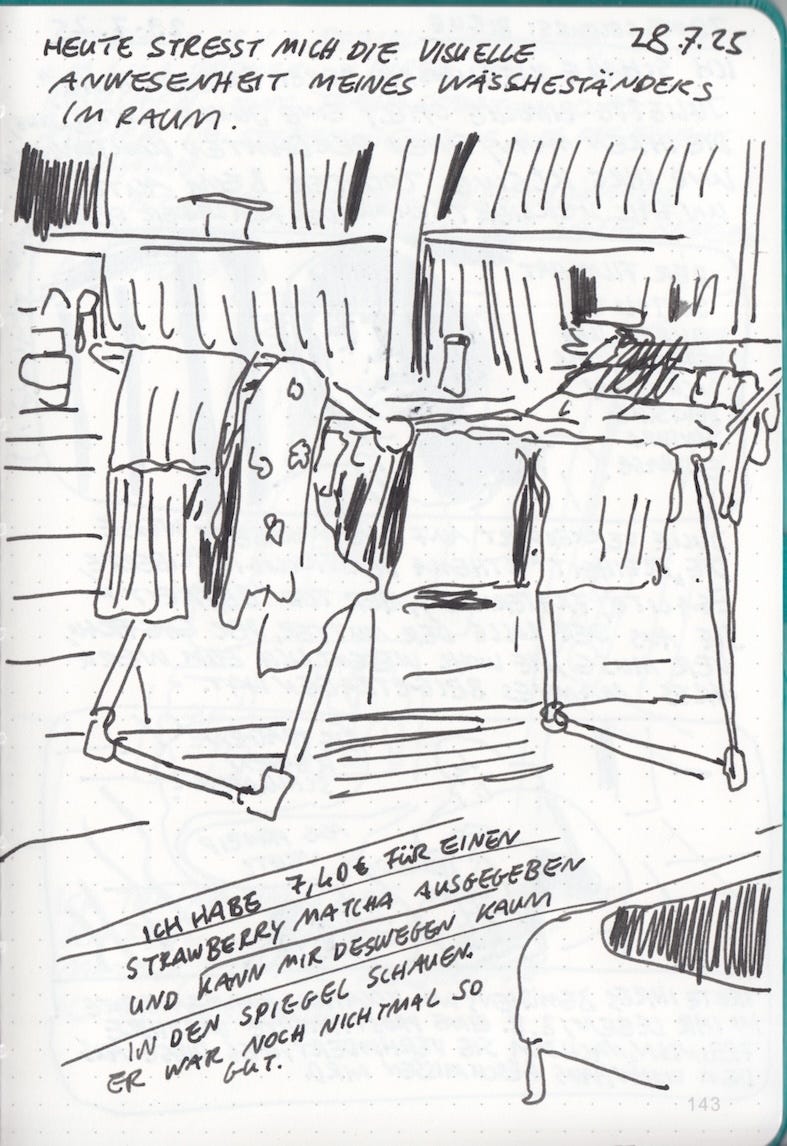 HEUTE STRESST MICH DIE VISUELLE
28.7.25
ANWESENHEIT MEINES WÄSSCHESTÄNDERS
IM RAUM.
ICH HABE 7,40€ FÜR EINEN
STRAWBERRY MATCHA AUSGEGEBEN
UND KANN MIR DESWEGEN KAUM
IN DEN SPIEGEL SCHAUEN.
ER WAR NOCH NICHTMAL SO
GUT.
143